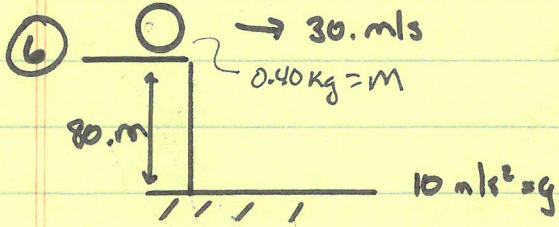 6
→ 30. m/s
0.40 Kg = M
80. m
10 m/s² = g